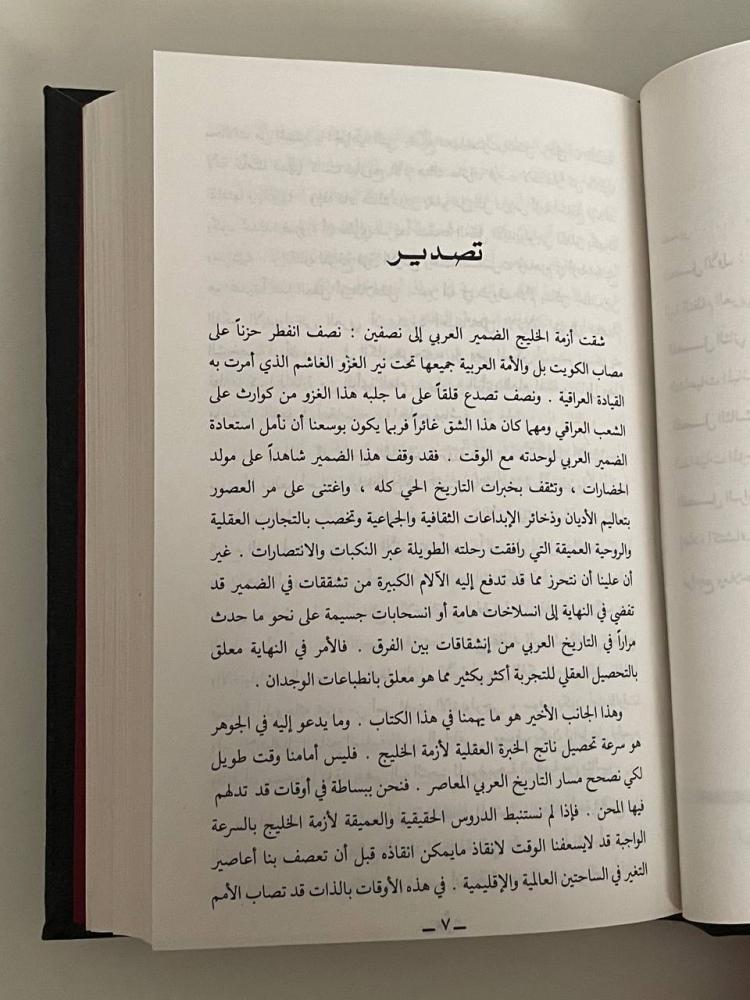 تصدير
شقت أزمة الخليج الضمير العربي إلى نصفين : نصف انفطر حزناً على
مصاب الكويت بل والأمة العربية جميعها تحت نير الغزو الغاشم الذي أمرت به
القيادة العراقية . ونصف تصدع قلقاً على ما جلبه هذا الغزو من كوارث على
الشعب العراقي ومهما كان هذا الشق غائراً فربما يكون بوسعنا أن نأمل استعادة
الضمير العربي لوحدته مع الوقت . فقد وقف هذا الضمير شاهداً على مولد
الحضارات ، وتثقف بخبرات التاريخ الحي كله ، واغتنى على مر العصور
بتعاليم الأديان وذخائر الإبداعات الثقافية والجماعية وتخصب بالتجارب العقلية
والروحية العميقة التي رافقت رحلته الطويلة عبر النكبات والانتصارات . غير
أن علينا أن نتحرز مما قد تدفع إليه الآلام الكبيرة من تشققات في الضمير قد
تفضي في النهاية إلى انسلاخات هامة أو انسحابات جسيمة على نحو ما حدث
مراراً في التاريخ العربي من إنشقاقات بين الفرق . فالأمر في النهاية معلق
بالتحصيل العقلي للتجربة أكثر بكثير مما هو معلق بانطباعات الوجدان .
وهذا الجانب الأخير هو ما يهمنا في هذا الكتاب . وما يدعو إليه في الجوهر
هو سرعة تحصيل ناتج الخبرة العقلية لأزمة الخليج . فليس أمامنا وقت طويل
لكي نصحح مسار التاريخ العربي المعاصر . فنحن ببساطة في أوقات قد تدلهم
فيها المحن . فإذا لم نستنبط الدروس الحقيقية والعميقة لأزمة الخليج بالسرعة
الواجبة قد لايسعفنا الوقت لانقاذ مايمكن انقاذه قبل أن تعصف بنا أعاصير
التغير في الساحتين العالمية والإقليمية . في هذه الأوقات بالذات قد تصاب الأمم
ــ ٧ ــ